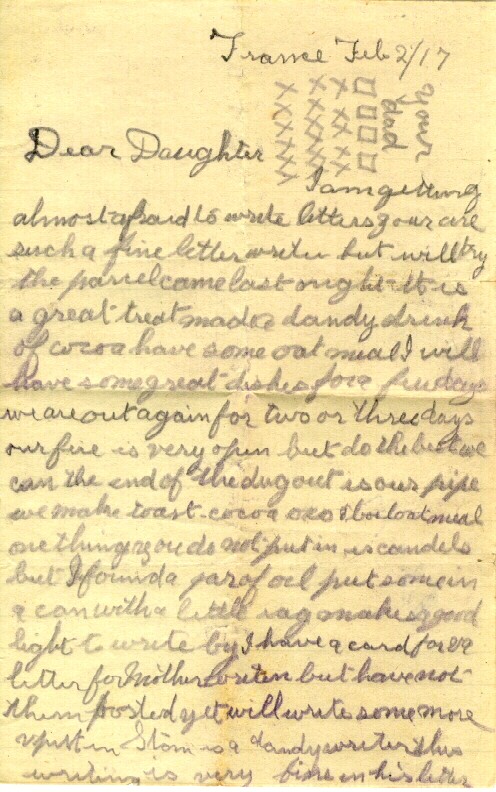 France Feb 2/17
your
dad
Dear Daughter
I am getting
almost afraid to write letters your are
such a fine letter writer but will try
the parcel came last night It is
a great treat made a dandy drink
of cocoa have some oat meal I will
have some great dishes for a few days
we are out again for two or three days
our fire is very open but do the best we
can the end of the dugout is our pipe
we make toast cocoa oxo & boil oat meal
one thing you do not put in is candels
but I found a jar of oil put some in
a can with a little rag makes a good
light to write by I have a card for
letter for Mother writen but have not
them posted yet will write some more
& put in Stan is a dandy writer this
writing is very in his letter